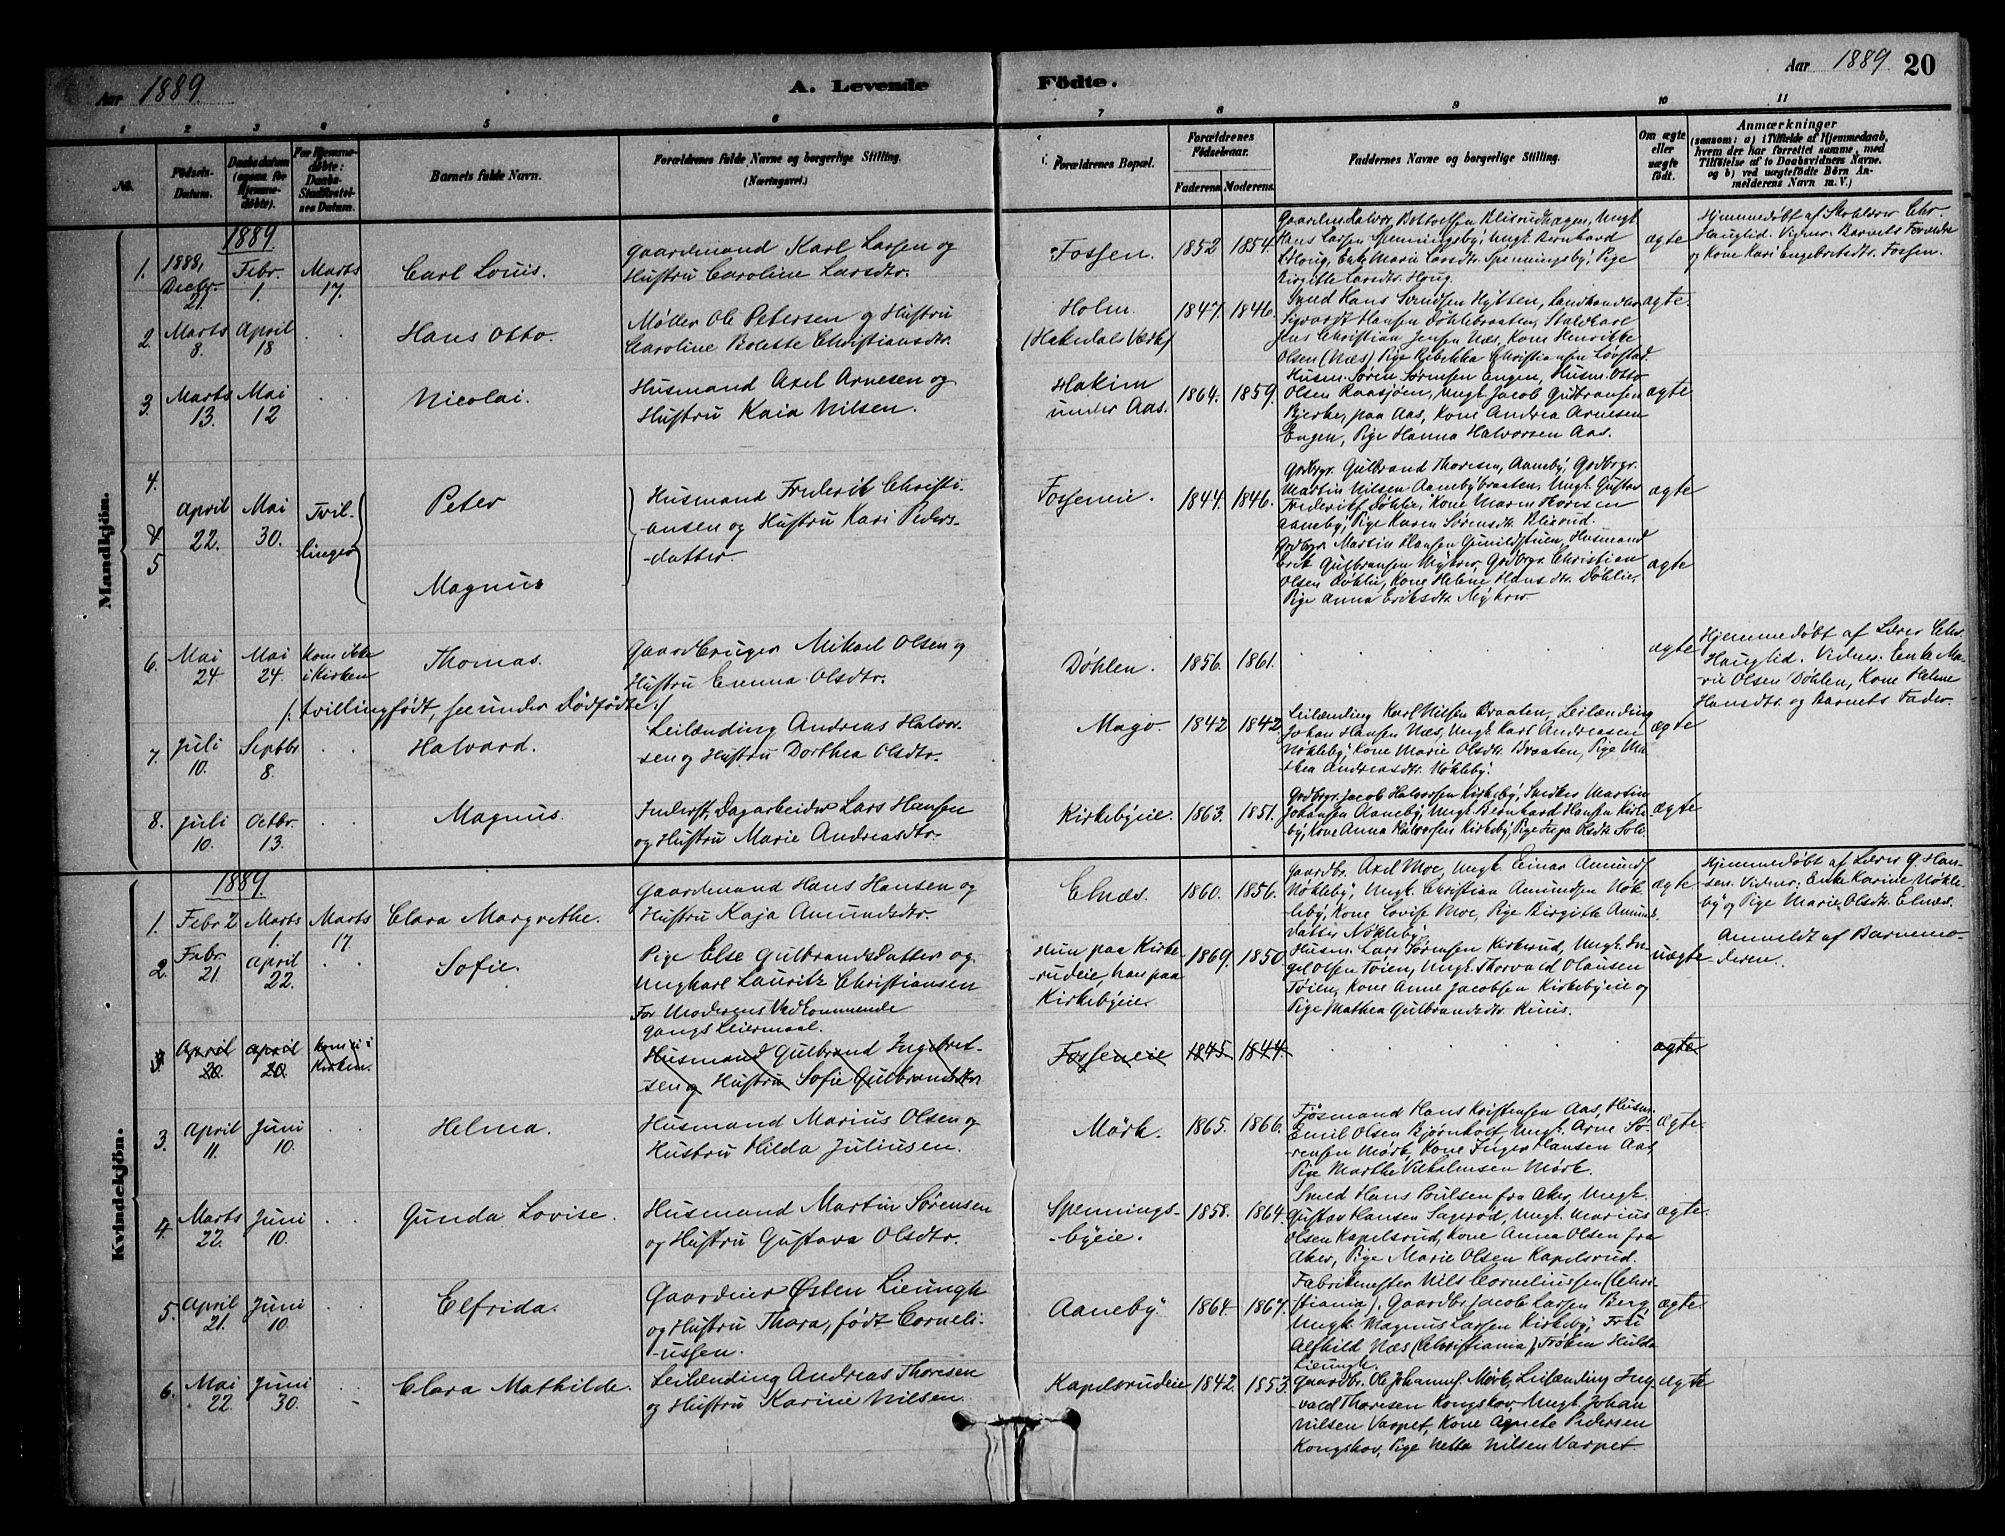 Aar 1889
A. Levende Födte.
Aar 1889 20
1 2 3 4 5 6 7 8 9 10 11
No.
Födsels-
Datum.
Daabsdatum
(ogsaa for
Hjemme-
døbte).
For Hjemme-
døbte:
Daabs-
Stadfæstel-
ses Datum.
Barnets fulde Navn.
Forældrenes fulde Navne og borgerlige Stilling.
(Næringsvei.)
Forældrenes Bopæl.
Forældrenes
Födselsaar.
Faderens. Moderens.
Faddernes Navne og borgerlige Stilling.
Om ægte
eller
uægte
født.
Anmærkninger
(saasom: a) i Tilfælde af Hjemmedaab,
hvem der har forrettet samme, med
Tilföielse af to Daabsvidners Navne.
og b) ved uægtefödte Börn An-
melderens Navn m. V.)
Mandkjön.
1889.
1. 1888, Decbr. 21. Febr. 1. Marts 17. Carl Louis.
Gaardmand Karl Larsen og
Hustru Caroline Larsdtr.
Fossen. 1852 1854.
Gaardm. Halvor Bottolfsen Blisrudhagen, Ungk.
Hans Larsen Spenningsby, Ungk. Bernhard
Houg, Enke Marie Larsdtr. Spenningsby, Pige
Birgitte Larsdtr. Houg.
ægte
Hjemmedøbt af Skolelærer Chr.
Haugtid. Vidner: Barnets Forældre
og Kone Kari Engebretsdtr. Fossen.
2. Marts 8. April 18 Hans Otto.
Møller Ole Petersen og Hustru
Caroline Bolette Christiansdtr.
Holm.
(Hakedals Værk)
1847. 1846.
Smed Hans Svendsen Hytten, Landhandler
Sigvardt Hansen Døhlebraaten, Staldkarl
Jens Christian Jensen Næs, Kone Henrikke
Olsen (Næs) Pige Rebekka Christiansen Løvstad.
ægte.
3. Marts 13. Mai 12 Nicolai.
Husmand Axel Arnesen og
Hustru Kaia Nilsen.
Hakim
under Aas.
1864. 1859.
Husm. Søren Sørensen Engen, Husm. Otto
Olsen Raasjøen, Ungk. Jacob Gulbransen
Bjerke, paa Aas, Kone Andrea Arnesen
Engen, Pige Hanna Halvorsen Aas.
ægte
4. & 5 April 22. Mai 30. Tvil-
linger
Peter
Magnus
Husmand Frederik Christi-
ansen og Hustru Kari Peders-
datter.
Fosseneie. 1844. 1846.
Gårdbrgr. Gulbrand Thoresen, Aaneby, Gårdbrgr.
Martin Nilsen Aanebybraaten, Ungk. Gustav
Frederiksf. Døhlie, Kone Maren Thoresen
Aaneby, Pige Karen Sørensdtr. Blisrud.
ægte
Gårdbrgr. Martin Hansen Gunildstuen, Husmand
Erik Gulbransen Mykrer, Gårdbrgr. Christian
Olsen Døhlie, Kone Helene Hansdtr. Døhlie,
Pige Anna Eriksdtr. Mykrer.
ægte
6. Mai 24 Mai 24. Kom ikke
i Kirken
Thomas.
Gaardbruger Mikael Olsen og
Hustru Emma Olsdtr.
Døhlen. 1856. 1861.
ægte
Hjemmedøbt af Lærer Chr.
Haugtid. Vidner: Enke Ma-
rie Olsen Døhlen, Kone Helene
Hansdtr. og Barnets Fader.
/: tvillingfødt, se under Dødfødte :/
7. Juli 10. Septbr. 8. Halvard.
Leilænding Andreas Halvor-
sen og Hustru Dorthea Olsdtr.
Mago. 1842 1842
Leilænding Karl Nilsen Braaten, Leilænding
Johan Hansen Næs, Ungk. Karl Andreasen
Nøkleby, Kone Marie Olsdtr. Braaten, Pige Ma-
thea Andreasdtr. Nøkleby.
ægte
8. Juli 10. Octbr. 13. Magnus.
Inderst, Dagarbeider Lars Hansen
og Hustru Marie Andreasdtr.
Kirkebyeie. 1863. 1851.
Gårdbrgr. Jacob Halvorsen Kirkeby, Snedker Martin
Johansen Aaneby, Ungk. Bernhard Hansen Kirke-
by, Kone Anna Halvorsen Kirkeby, Pige Olsdtr.
ægte
Kvindekjön.
1889.
1. Febr 2 Marts 1. Marts 17 Clara Margrethe.
Gaardmand Hans Hansen og
Hustru Kaja Amundsdtr.
Elnæs. 1860. 1856.
Gaardbr. Axel Moe, Ungk. Einar Amunds.
Nøkleby, Ungk. Christian Amundsen Nøk-
leby, Kone Lovise Moe, Pige Birgitte Amunds-
datter Nøkleby.
ægte
Hjemmedøbt af Lærer G. Han-
sen. Vidner: Enke Karine Nøkle-
by og Pige Marie Olsdtr. Elnæs.
2. Febr 21. April 22. Sofie.
Pige Else Gulbrandsdatter og
Ungkarl Lauritz Christiansen
For Moderens Vedkommende
Gangs Leiermaal.
Hun paa Kirke-
rudeie, han paa
Kirkebyeie
1869. 1850
Husm. Lars Sørensen Kirkerud, Ungk. In-
gel Olsen Tøien, Ungk. Thorvald Olausen
Tøien, Kone Anne Jacobsen Kirkebyeie og
Pige Mathea Gulbrandsdtr.
uægte
Anmeldt af Barnemo-
deren.
April 20. April 20. Kom ei i
Kirken.
Husmand Gulbrand Ingebret-
sen og Hustru Sofie Gulbrandsdtr
Fosseneie 1845. 1844.
ægte
3. April 11. Juni 10. Helma.
Husmand Marius Olsen og
Hustru Hilda Juliussen.
Mørk. 1865. 1866.
Fjøsmand Hans Kristensen Aas, Husm.
Emil Olsen Bjørnholt, Ungk. Arne Sø-
rensen Mørk, Kone Inger Hansen Aas,
Pige Marthe Vilhelmsen Mørk.
ægte.
4. Marts 22. Juni 10. Gunda Lovise.
Husmand Martin Sørensen
og Hustru Gustava Olsdtr.
Spennings-
byeie.
1858. 1864.
Smed Hans Poulsen fra Aker, Ungk.
Gustav Hansen Sagerød, Ungk. Marius
Olsen Kapelsrud, Kone Anna Olsen fra
Aker, Pige Marie Olsen Kapelsrud.
ægte.
5. April 21. Juni 10. Elfrida.
Gaardeier Østen Lieungh
og Hustru Thora, født Corneli-
ussen.
Aaneby. 1864. 1867.
Fabrikmester Nils Corneliussen (Chri-
stiania), Gaardbr. Jacob Larsen Berg,
Ungk. Magnus Larsen Kirkeby, Fru
Alfhild Næs (Christiania), Frøken Hulda
Lieungh.
ægte.
6. Mai 22. Juni 30. Clara Mathilde.
Leilænding Andreas Thoresen
og Hustru Karine Nilsen.
Kapelsrudeie 1842. 1853.
Gaardbr. Ole Johannes. Mørk, Leilænding Ing-
vald Thoresen Kongskov, Ungk. Johan
Nilsen Varpet, Kone Agnete Pedersen
Kongskov, Pige Netta Nilsen Varpet
ægte